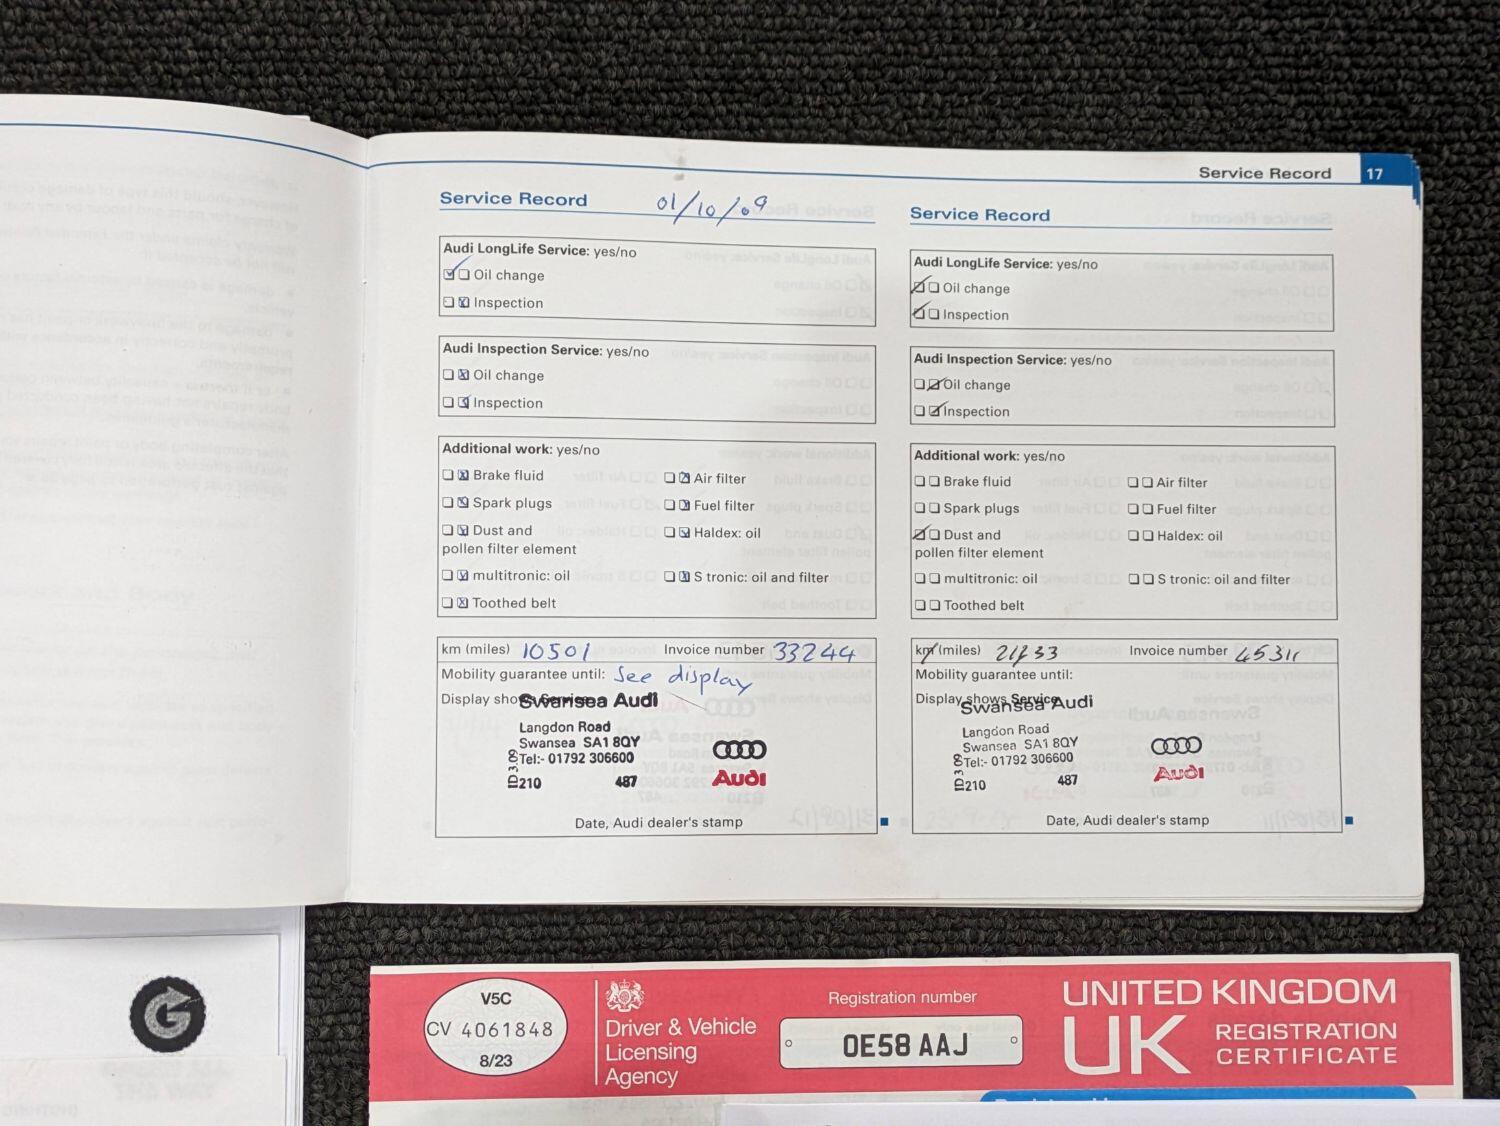 Service Record 17
Service Record 01/10/09
Audi LongLife Service: yes/no
Oil change
Inspection
Audi Inspection Service: yes/no
Oil change
Inspection
Additional work: yes/no
Brake fluid Air filter
Spark plugs Fuel filter
Dust and Haldex: oil
pollen filter element
multitronic: oil S tronic: oil and filter
Toothed belt
km (miles) 10501 Invoice number 33244
Mobility guarantee until: See display
Display shows Service
Swansea Audi
Langdon Road
Swansea SA1 8QY
Tel:- 01792 306600
210 487
Audi
Date, Audi dealer's stamp
Service Record
Audi LongLife Service: yes/no
Oil change
Inspection
Audi Inspection Service: yes/no
Oil change
Inspection
Additional work: yes/no
Brake fluid Air filter
Spark plugs Fuel filter
Dust and Haldex: oil
pollen filter element
multitronic: oil S tronic: oil and filter
Toothed belt
km (miles) Invoice number
Mobility guarantee until:
Display shows Service
Swansea Audi
Langdon Road
Swansea SA1 8QY
Tel:- 01792 306600
210 487
Audi
Date, Audi dealer's stamp
G
V5C
CV 4061848
8/23
Driver & Vehicle
Licensing
Agency
Registration number
OE58 AAJ
UNITED KINGDOM
UK REGISTRATION
CERTIFICATE